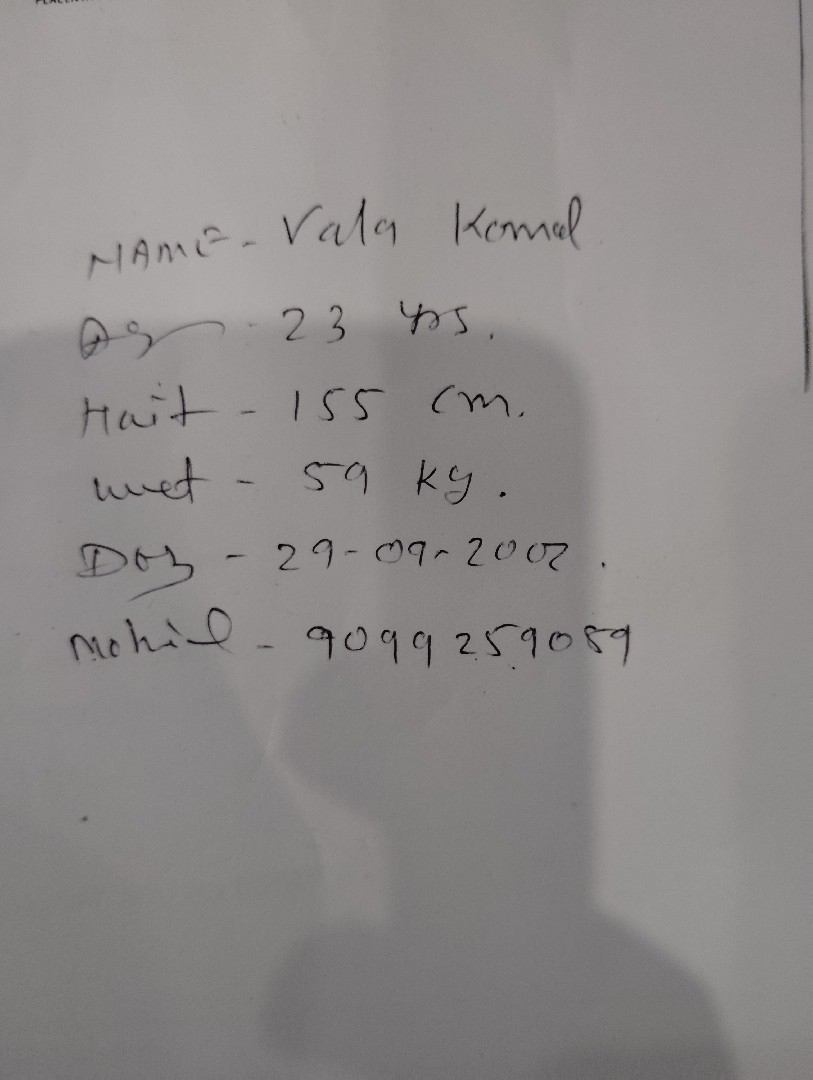 NAME - Vala Komal
Age - 23 yrs.
Hait - 155 cm.
wet - 59 kg.
DOB - 29-09-2002.
Mobil - 9099259089